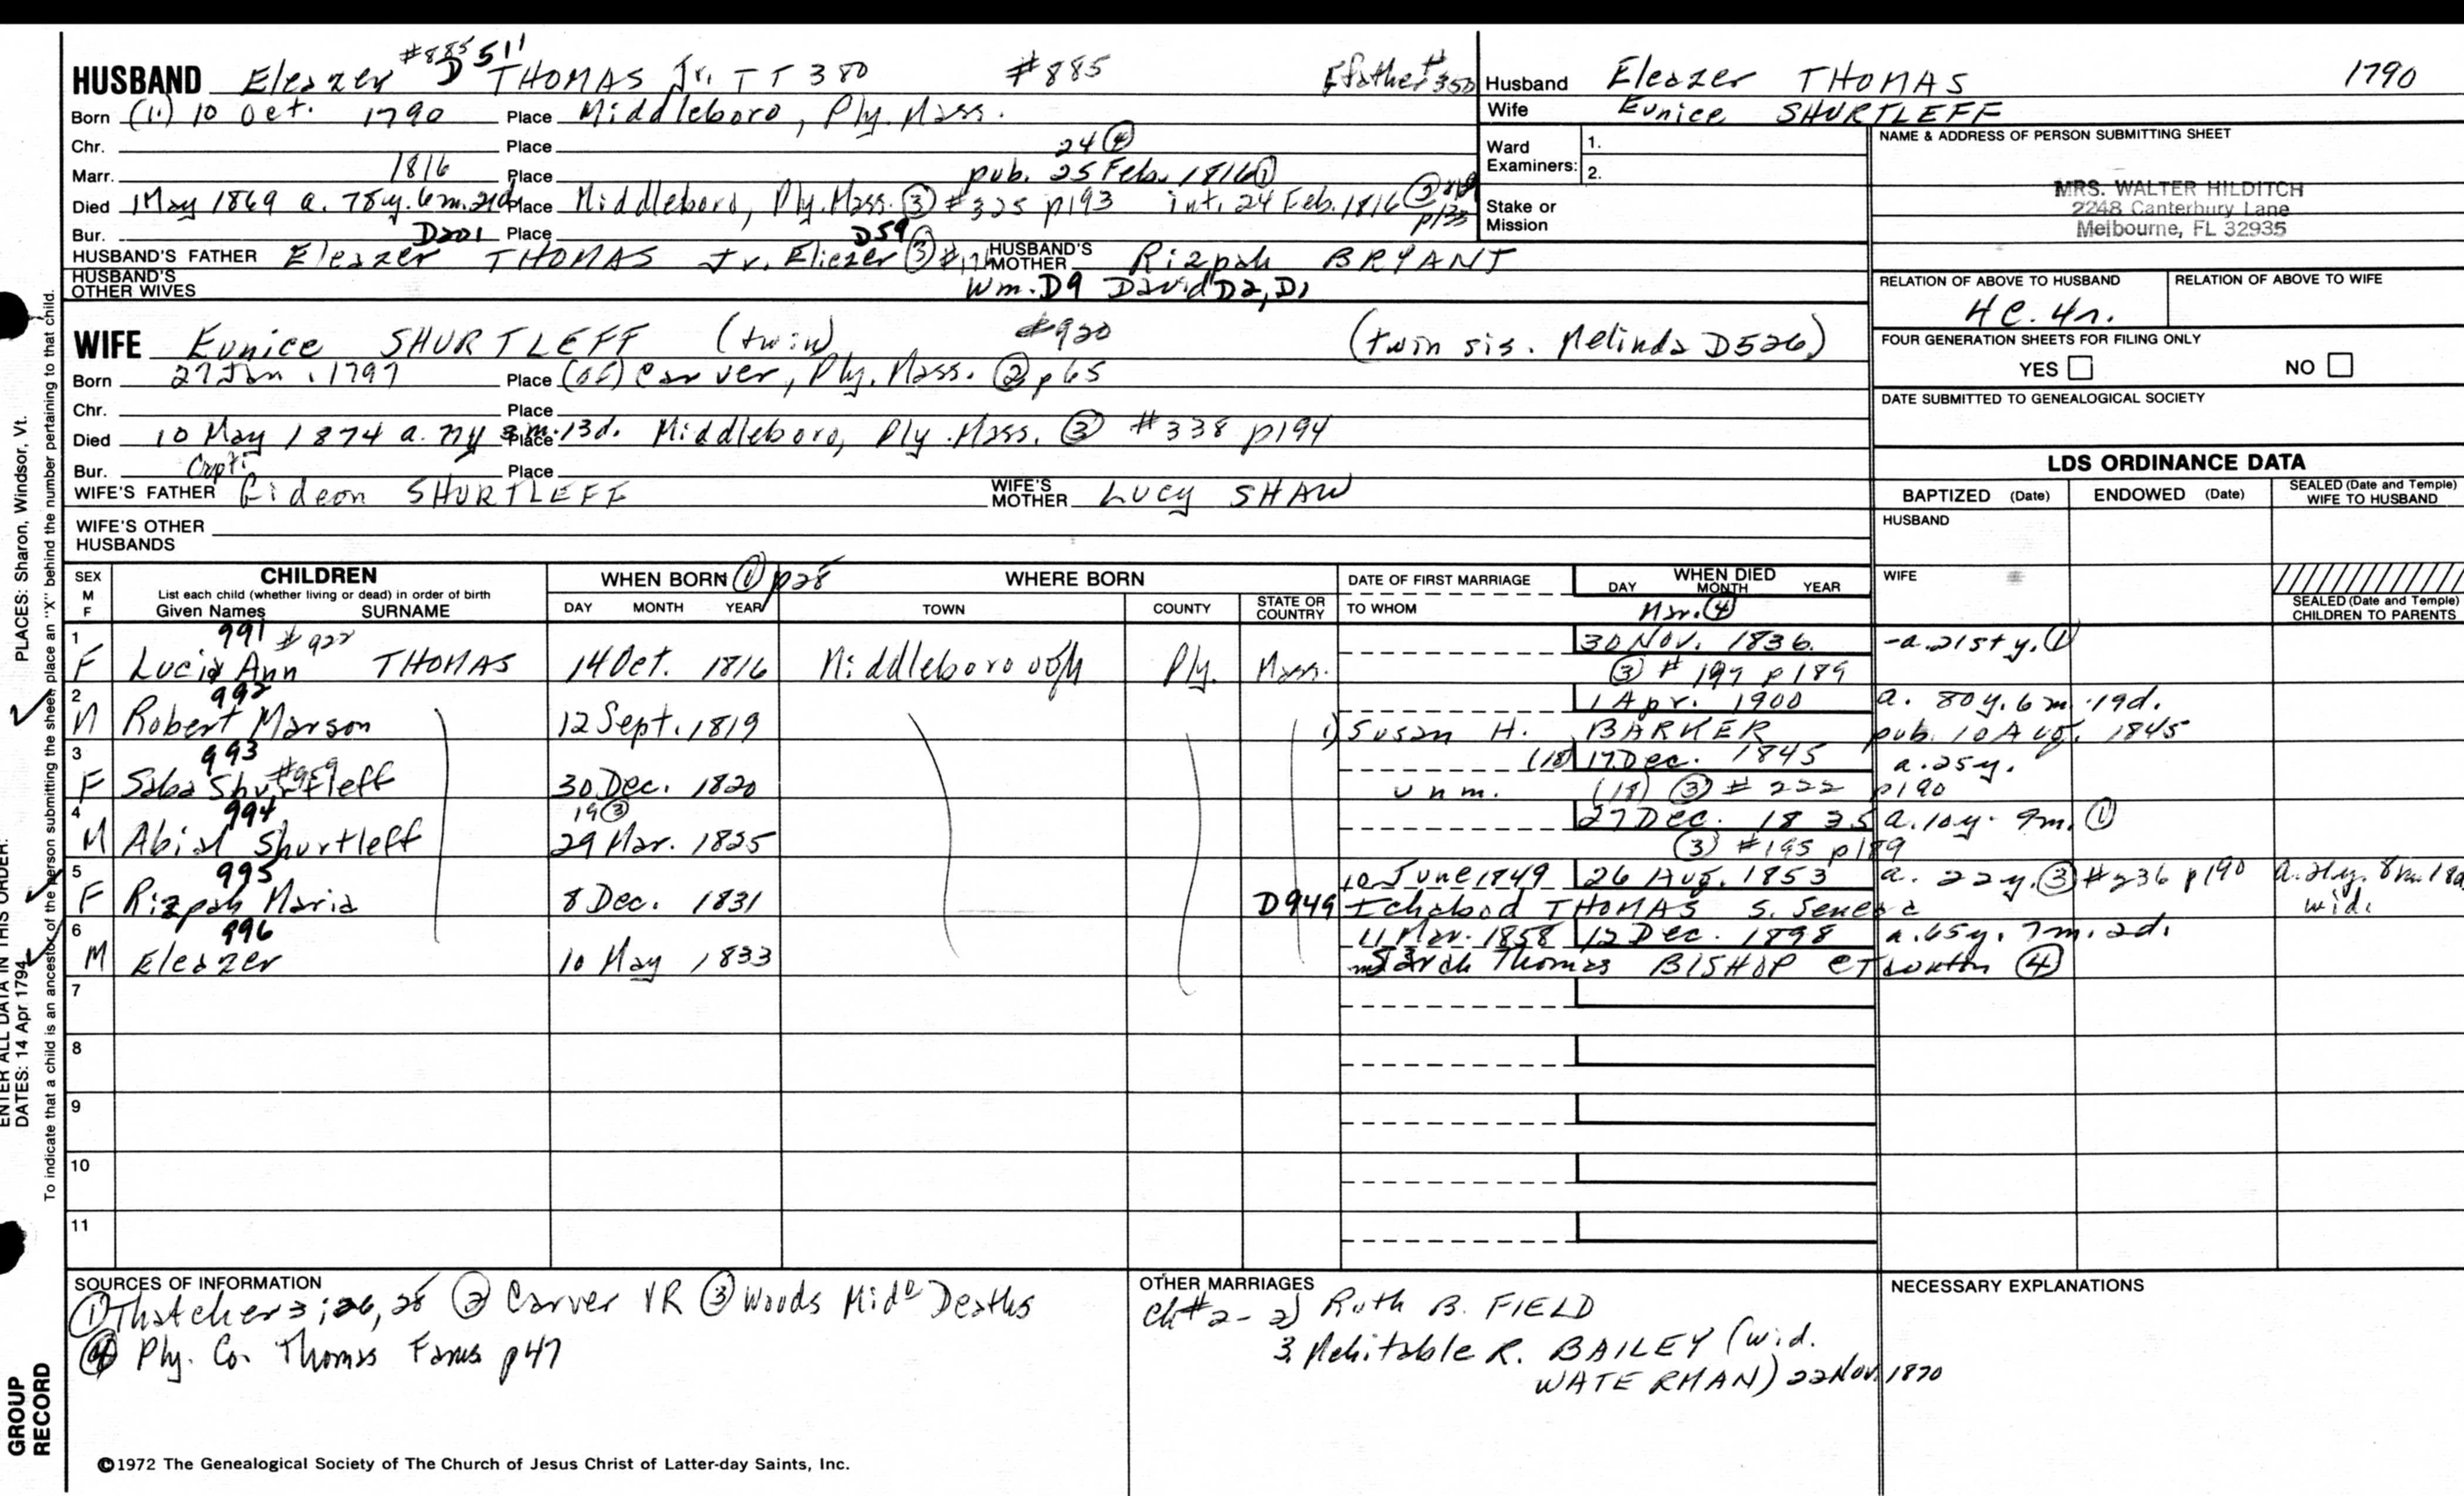 #885 511
HUSBAND Eleazer D THOMAS Jr. TT 380 #885 father #350
Born (1.) 10 Oct. 1790 Place Middleboro, Ply. Mass.
Chr. Place 24 ④
Marr. 1816 Place pub. 25 Feb. 1816 ①
Died 1 May 1869 a. 78y. 6m. 21d. Place Middleboro, Ply. Mass. ③ #325 p193 int. 24 Feb. 1816 ② p133
Bur. D201 Place D59
HUSBAND'S FATHER Eleazer THOMAS Jr. Eliezer ③ HUSBAND'S MOTHER Rizpah BRYANT
HUSBAND'S OTHER WIVES Wm. D9 David D2, D1
WIFE Eunice SHURTLEFF (twin) #920 (twin sis. Melinda D526)
Born 27 Jan. 1797 Place (of) Carver, Ply. Mass. ② p65
Chr. Place
Died 10 May 1874 a. 77y 3m. 13d. Place Middleboro, Ply. Mass. ③ #338 p194
Bur. Place
Capt.
WIFE'S FATHER Gideon SHURTLEFF WIFE'S MOTHER Lucy SHAW
WIFE'S OTHER
HUSBANDS
Husband Eleazer THOMAS 1790
Wife Eunice SHURTLEFF
Ward
Examiners: 1.
2.
Stake or
Mission
NAME & ADDRESS OF PERSON SUBMITTING SHEET
MRS. WALTER HILDITCH
2248 Canterbury Lane
Melbourne, FL 32935
RELATION OF ABOVE TO HUSBAND RELATION OF ABOVE TO WIFE
4c. 4r.
FOUR GENERATION SHEETS FOR FILING ONLY
YES NO
DATE SUBMITTED TO GENEALOGICAL SOCIETY
LDS ORDINANCE DATA
BAPTIZED (Date) ENDOWED (Date) SEALED (Date and Temple) WIFE TO HUSBAND
HUSBAND
WIFE
SEALED (Date and Temple)
CHILDREN TO PARENTS
SEX
M
F
CHILDREN
List each child (whether living or dead) in order of birth
Given Names SURNAME
WHEN BORN ① p28
DAY MONTH YEAR
WHERE BORN
TOWN COUNTY STATE OR COUNTRY
DATE OF FIRST MARRIAGE
TO WHOM
WHEN DIED
DAY MONTH YEAR
④
1 991 #922 30 Nov. 1836. -a. 21st y. ①
F Lucia Ann THOMAS 14 Oct. 1816 Middleborough Ply. Mass. ③ #197 p189
2 992 1 Apr. 1900 a. 80y. 6m. 19d.
M Robert Marson 12 Sept. 1819 1) Susan H. BARKER pub. 10 Aug. 1845
3 993 #959 (18) 17 Dec. 1845 a. 25y.
F Saba Shurtleff 30 Dec. 1820 unm. (18) ③ #222 p190
4 994 19 ③ 27 Dec. 1835 a. 10y. 9m. ①
M Abial Shurtleff 29 Mar. 1825 ③ #195 p189
5 995 10 June 1849 26 Aug. 1853 a. 22y. ③ #236 p190 a. 21y. 8m. 18d
F Rizpah Maria 8 Dec. 1831 D949 Ichabod THOMAS S. Seneca wid.
6 996 11 Mar. 1858 12 Dec. 1898 a. 65y. 7m. 2d.
M Eleazer 10 May 1833 Sarah Thomas BISHOP ④
7
8
9
10
11
SOURCES OF INFORMATION
① Thatcher 3; 26, 28 ② Carver VR ③ Woods Mid Deaths
④ Ply. Co. Thomas Fams p47
OTHER MARRIAGES
ch #2 - 2) Ruth B. FIELD
3. Mehitable R. BAILEY (wid.
WATERMAN) 22 Nov. 1870
NECESSARY EXPLANATIONS
©1972 The Genealogical Society of The Church of Jesus Christ of Latter-day Saints, Inc.
PLACES: Sharon, Windsor, Vt.
ENTER ALL DATA IN THIS ORDER:
DATES: 14 Apr 1794
To indicate that a child is an ancestor of the person submitting the sheet, place an "X" behind the number pertaining to that child.
GROUP
RECORD